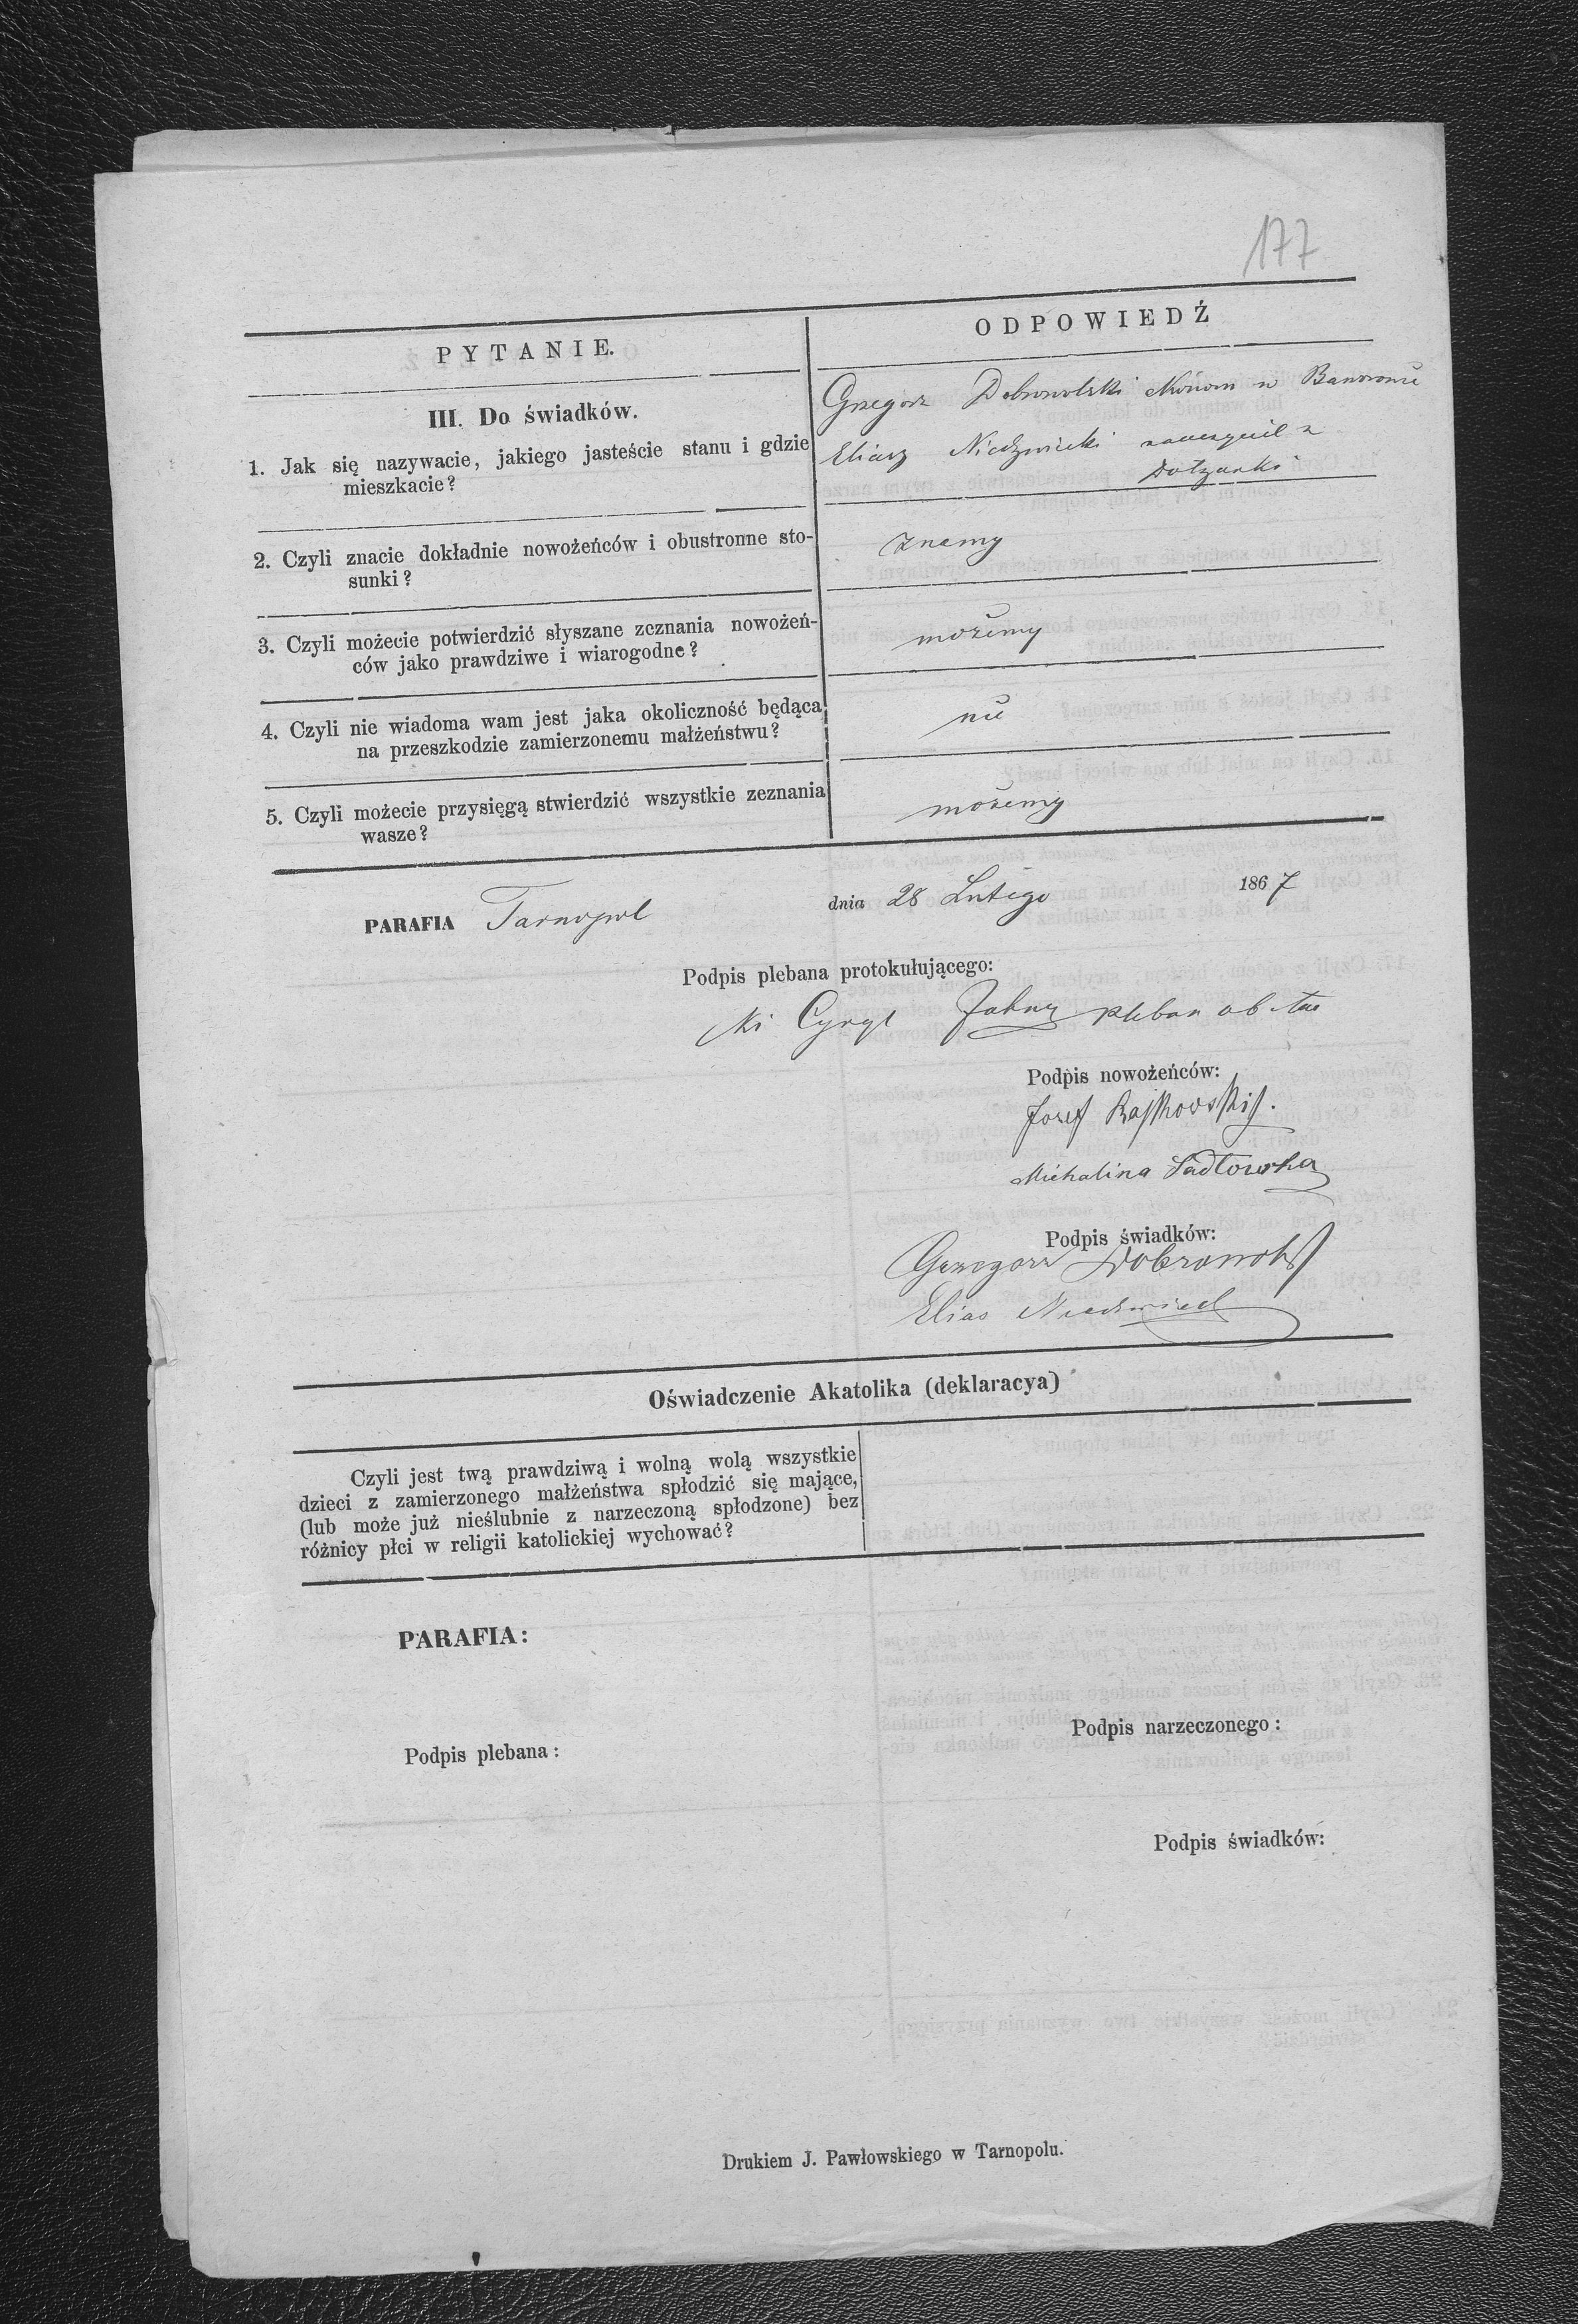 177
PYTANIE.
ODPOWIEDŹ
III. Do świadków.
1. Jak się nazywacie, jakiego jasteście stanu i gdzie
mieszkacie?
Grzegorz Dobrowolski Ekonom w
Eliasz Niedzwiecki nauczyciel z
Dołzanki
2. Czyli znacie dokładnie nowożeńców i obustronne sto-
sunki?
znamy
3. Czyli możecie potwierdzić słyszane zeznania nowożeń-
ców jako prawdziwe i wiarogodne?
możemy
4. Czyli nie wiadoma wam jest jaka okoliczność będąca
na przeszkodzie zamierzonemu małżeństwu?
nie
5. Czyli możecie przysięgą stwierdzić wszystkie zeznania
wasze?
możemy
PARAFIA Tarnopol dnia 28 Lutego 1867
Podpis plebana protokułującego:
Cyryl pleban
Podpis nowożeńców:
Jozef
Michalina Sadłowska
Podpis świadków:
Grzegorz Dobrowolski
Elias
Oświadczenie Akatolika (deklaracya)
Czyli jest twą prawdziwą i wolną wolą wszystkie
dzieci z zamierzonego małżeństwa spłodzić się mające,
(lub może już nieślubnie z narzeczoną spłodzone) bez
różnicy płci w religii katolickiej wychować?
PARAFIA:
Podpis plebana:
Podpis narzeczonego:
Podpis świadków:
Drukiem J. Pawłowskiego w Tarnopolu.